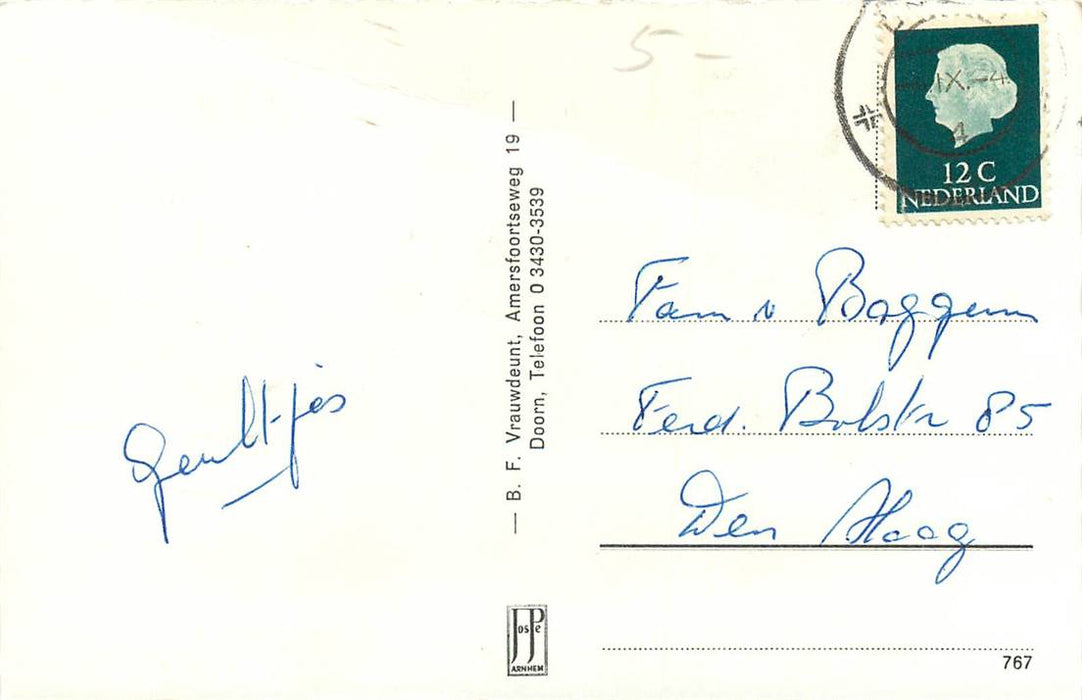 5-
IX.-4
4
12 C
NEDERLAND
— B. F. Vrauwdeunt, Amersfoortseweg 19 —
Doorn, Telefoon 0 3430-3539
Fam v Baggum
Ferd. Bolstr 85
Den Haag
JosPe
ARNHEM
767